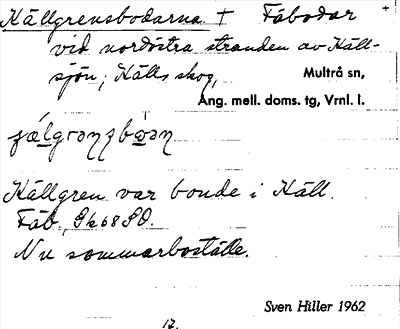 Källgrensbodarna † Fäbodar +
vid nordöstra stranden av Käll-
sjön; Källs skog,
Multrå sn,
Ång. mell. doms. tg, Vrnl. l.
Källgren var bonde i Käll.
Fäb., Gk 68 SO.
Nu sommarboställe.
Sven Hiller 1962
17.